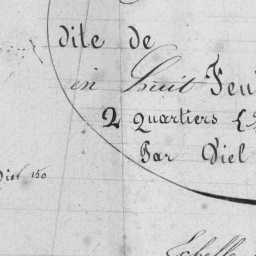 dite de
en Huit Feui
2 Quartiers
Par Viel
Viel 150
Echelle